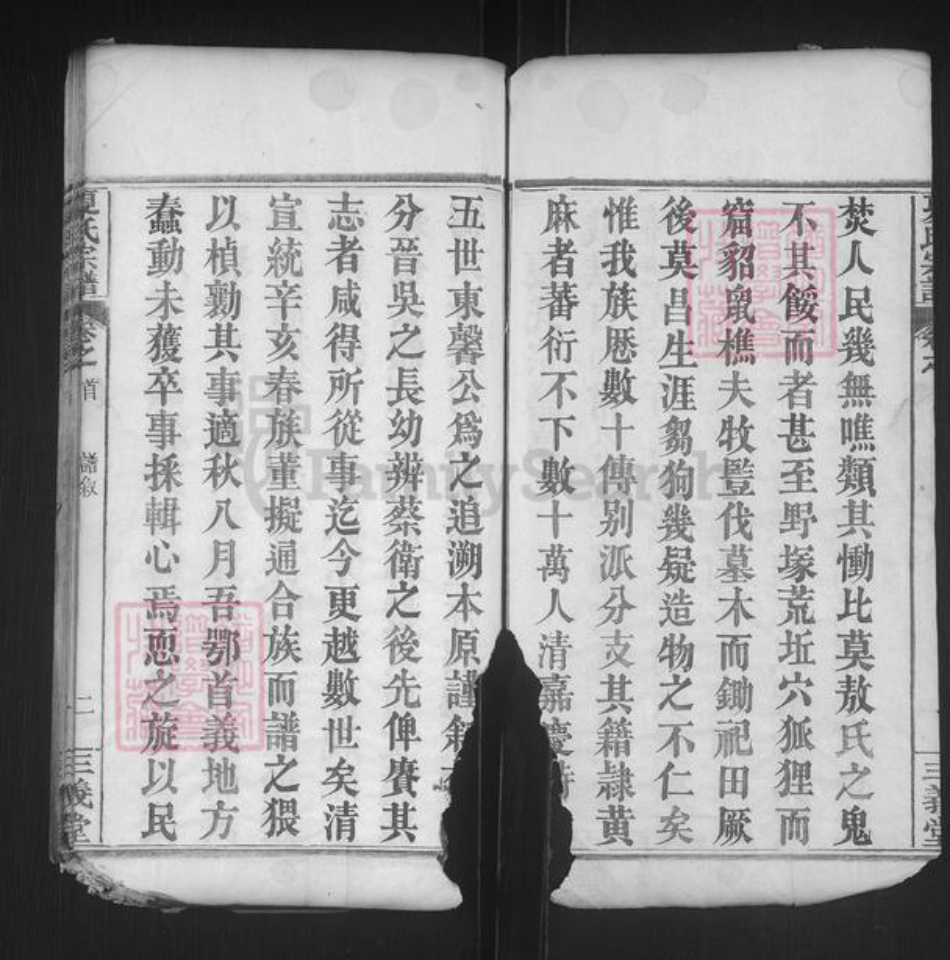 焚人民幾無噍類其慟比莫敖氏之鬼
不其餒而者甚至野塚荒坵穴狐狸而
窟貂鼠樵夫牧豎伐墓木而鋤祀田厥
後莫昌生涯芻狗幾疑造物之不仁矣
惟我族歷數十傳别派分支其籍隸黄
麻者蕃衍不下數十萬人清嘉慶時
五世東馨公爲之追溯本原謹
分晉吳之長幼辨蔡衛之後先俾賡其
志者咸得所從事迄今更越數世矣清
宣統辛亥春族董擬通合族而譜之猥
以楨勷其事適秋八月吾鄂首義地方
蠢動未獲卒事採輯心焉恧之旋以民
夏氏宗譜
卷之首
譜叙
二
三義堂
三義堂
FamilySearch